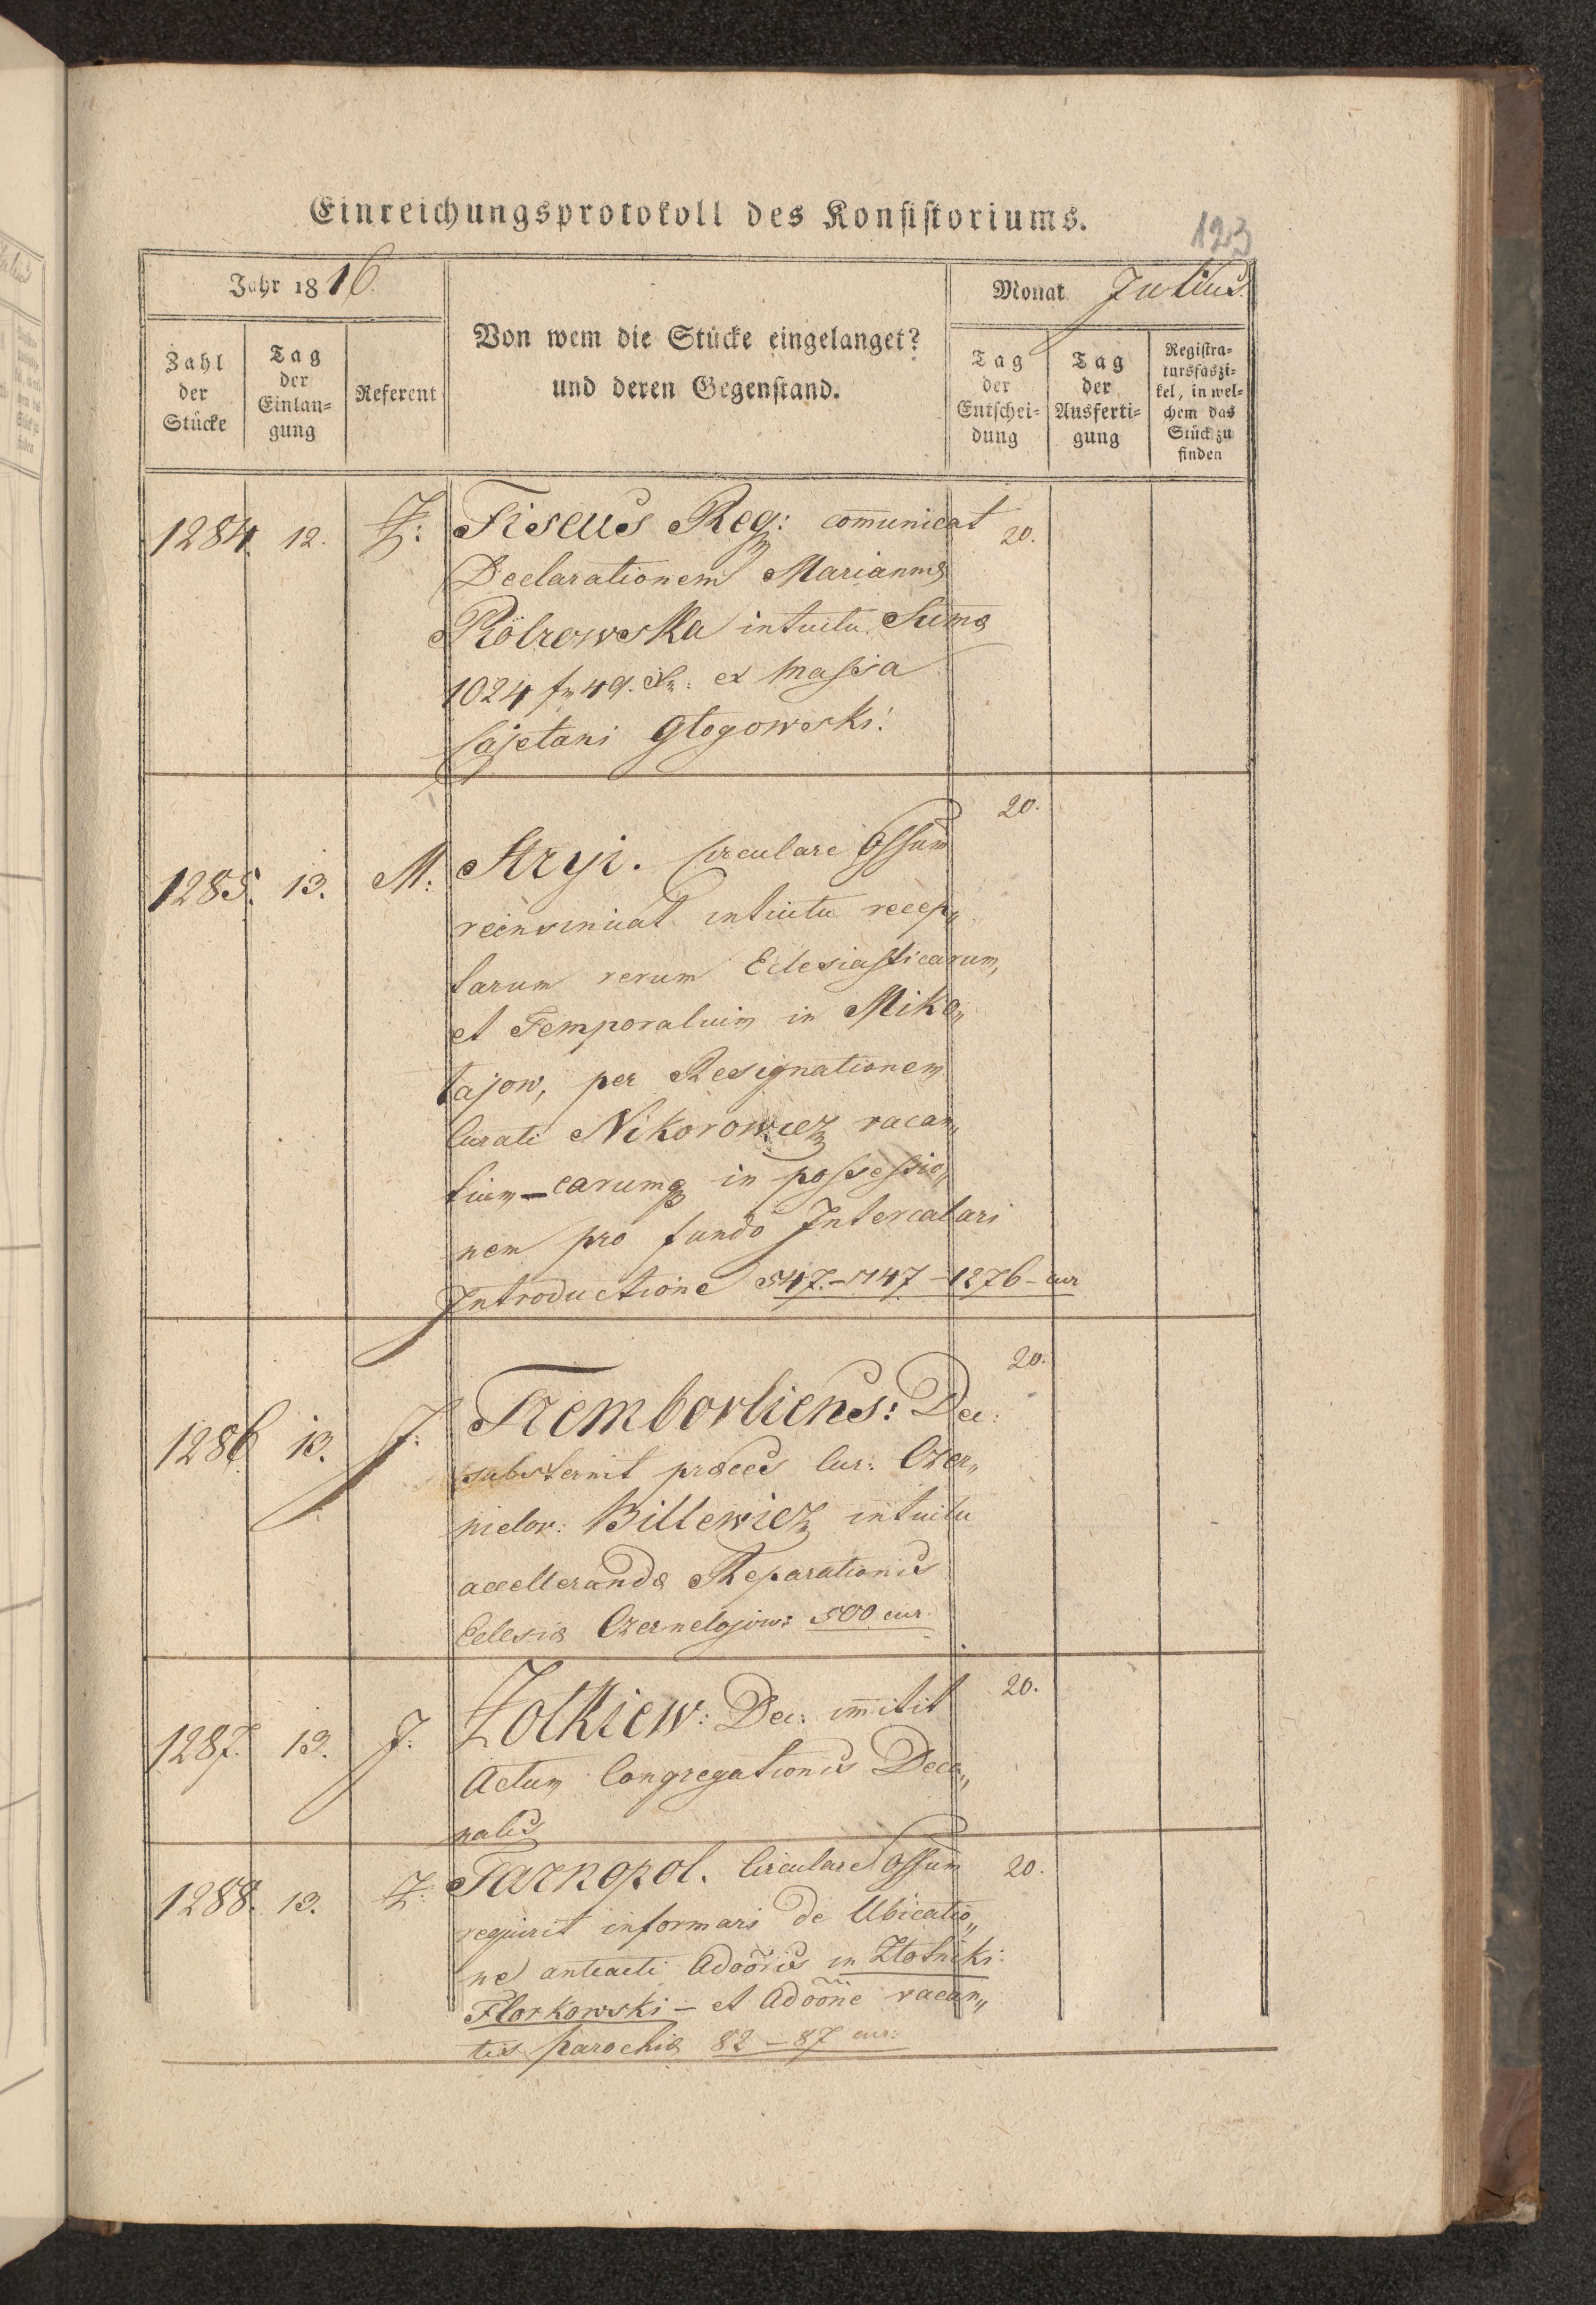 Einreichungsprotokoll des Konsistoriums.
123
Jahr 1816.
Von wem die Stücke eingelanget?
und deren Gegenstand.
Monat Julius.
Zahl
der
Stücke
Tag
der
Einlan=
gung
Referent
Tag
der
Entschei=
dung
Tag
der
Ausferti=
gung
Registra=
tursfaszi=
kel, in wel=
chem das
Stück zu
finden
1284. 12. Z: Fiscus Reg: comunicat 20.
Declarationem Marianna
intuitu Suma
1024 fr 49. Xr: ex Massa
Cajetani Głogowski.
20.
1285. 13. M: Stryi. Circulare Offium
reinsinuat intuitu recep„
tarum rerum Eclesiasticarum,
et Temporalium in Miko„
łajow, per Resignationem
Curati Nikorowicz vacan„
tium – earumq in possessio„
nem pro fundo Intercalari
Introductione 547. – 747 – 1276 – cur
20.
1286 13. J: Trembovliens: Dec:
substernit præces Cur: Czer„
nielov: Billewicz intuitu
accelleranda Reparationis
Eclesia Czernelojow: 500 cur.
1287. 13. J: Żołkiew: Dec: imitit 20.
Actum Congregationis Deca„
nalis
1288. 13. Z: Tarnopol. Circulare Offium 20.
requirit informari de Ubicatio„
ne anteacti Adõõris in Złotniki:
Florkowski – et Adõõne vacan„
tis parochia 82 – 87 cur: